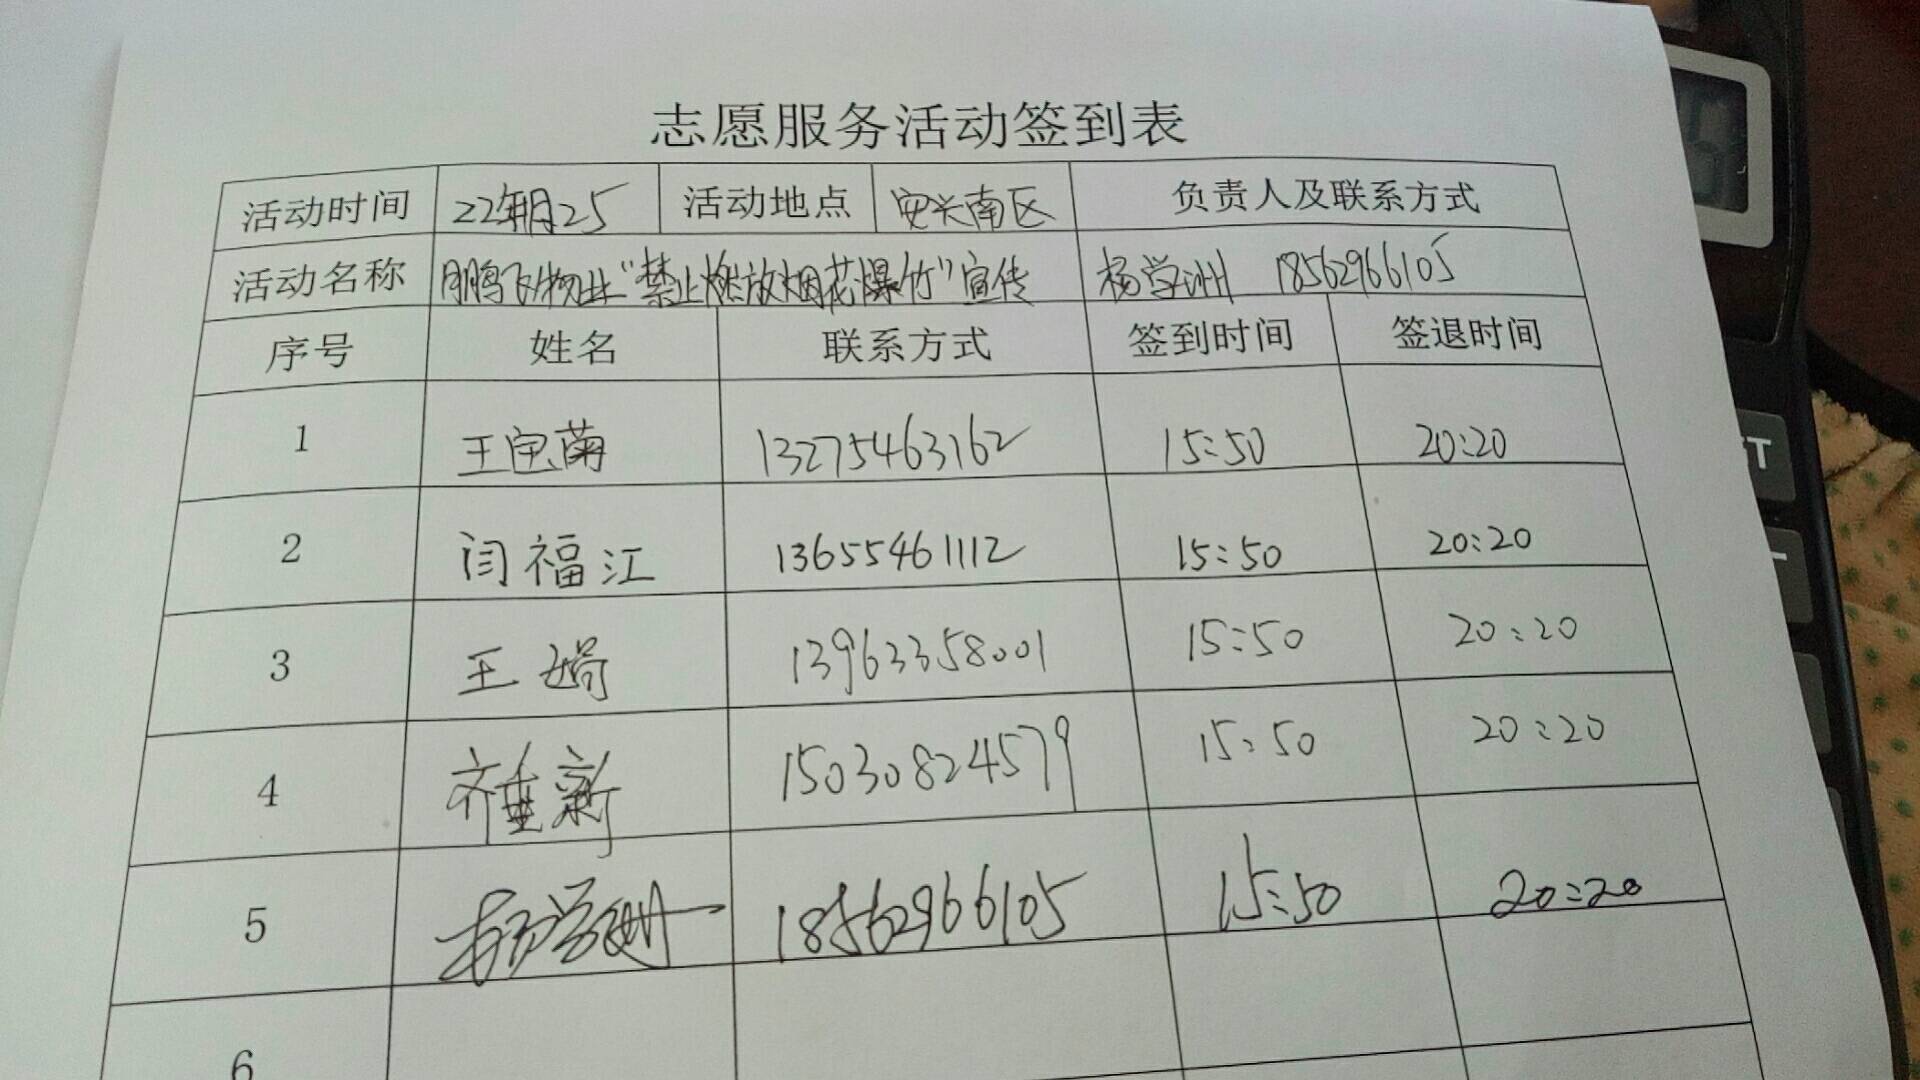 志愿服务活动签到表
活动时间 22年1月25 活动地点 安兴南区 负责人及联系方式
活动名称 鹏飞物业“禁止燃放烟花爆竹”宣传 杨学洲 18562966105
序号 姓名 联系方式 签到时间 签退时间
1 王宝菊 13275463162 15:50 20:20
2 闫福江 13655461112 15:50 20:20
3 王 13963358001 15:50 20:20
4 齐重新 15030824579 15:50 20:20
5 杨学洲 18562966105 15:50 20:20
6